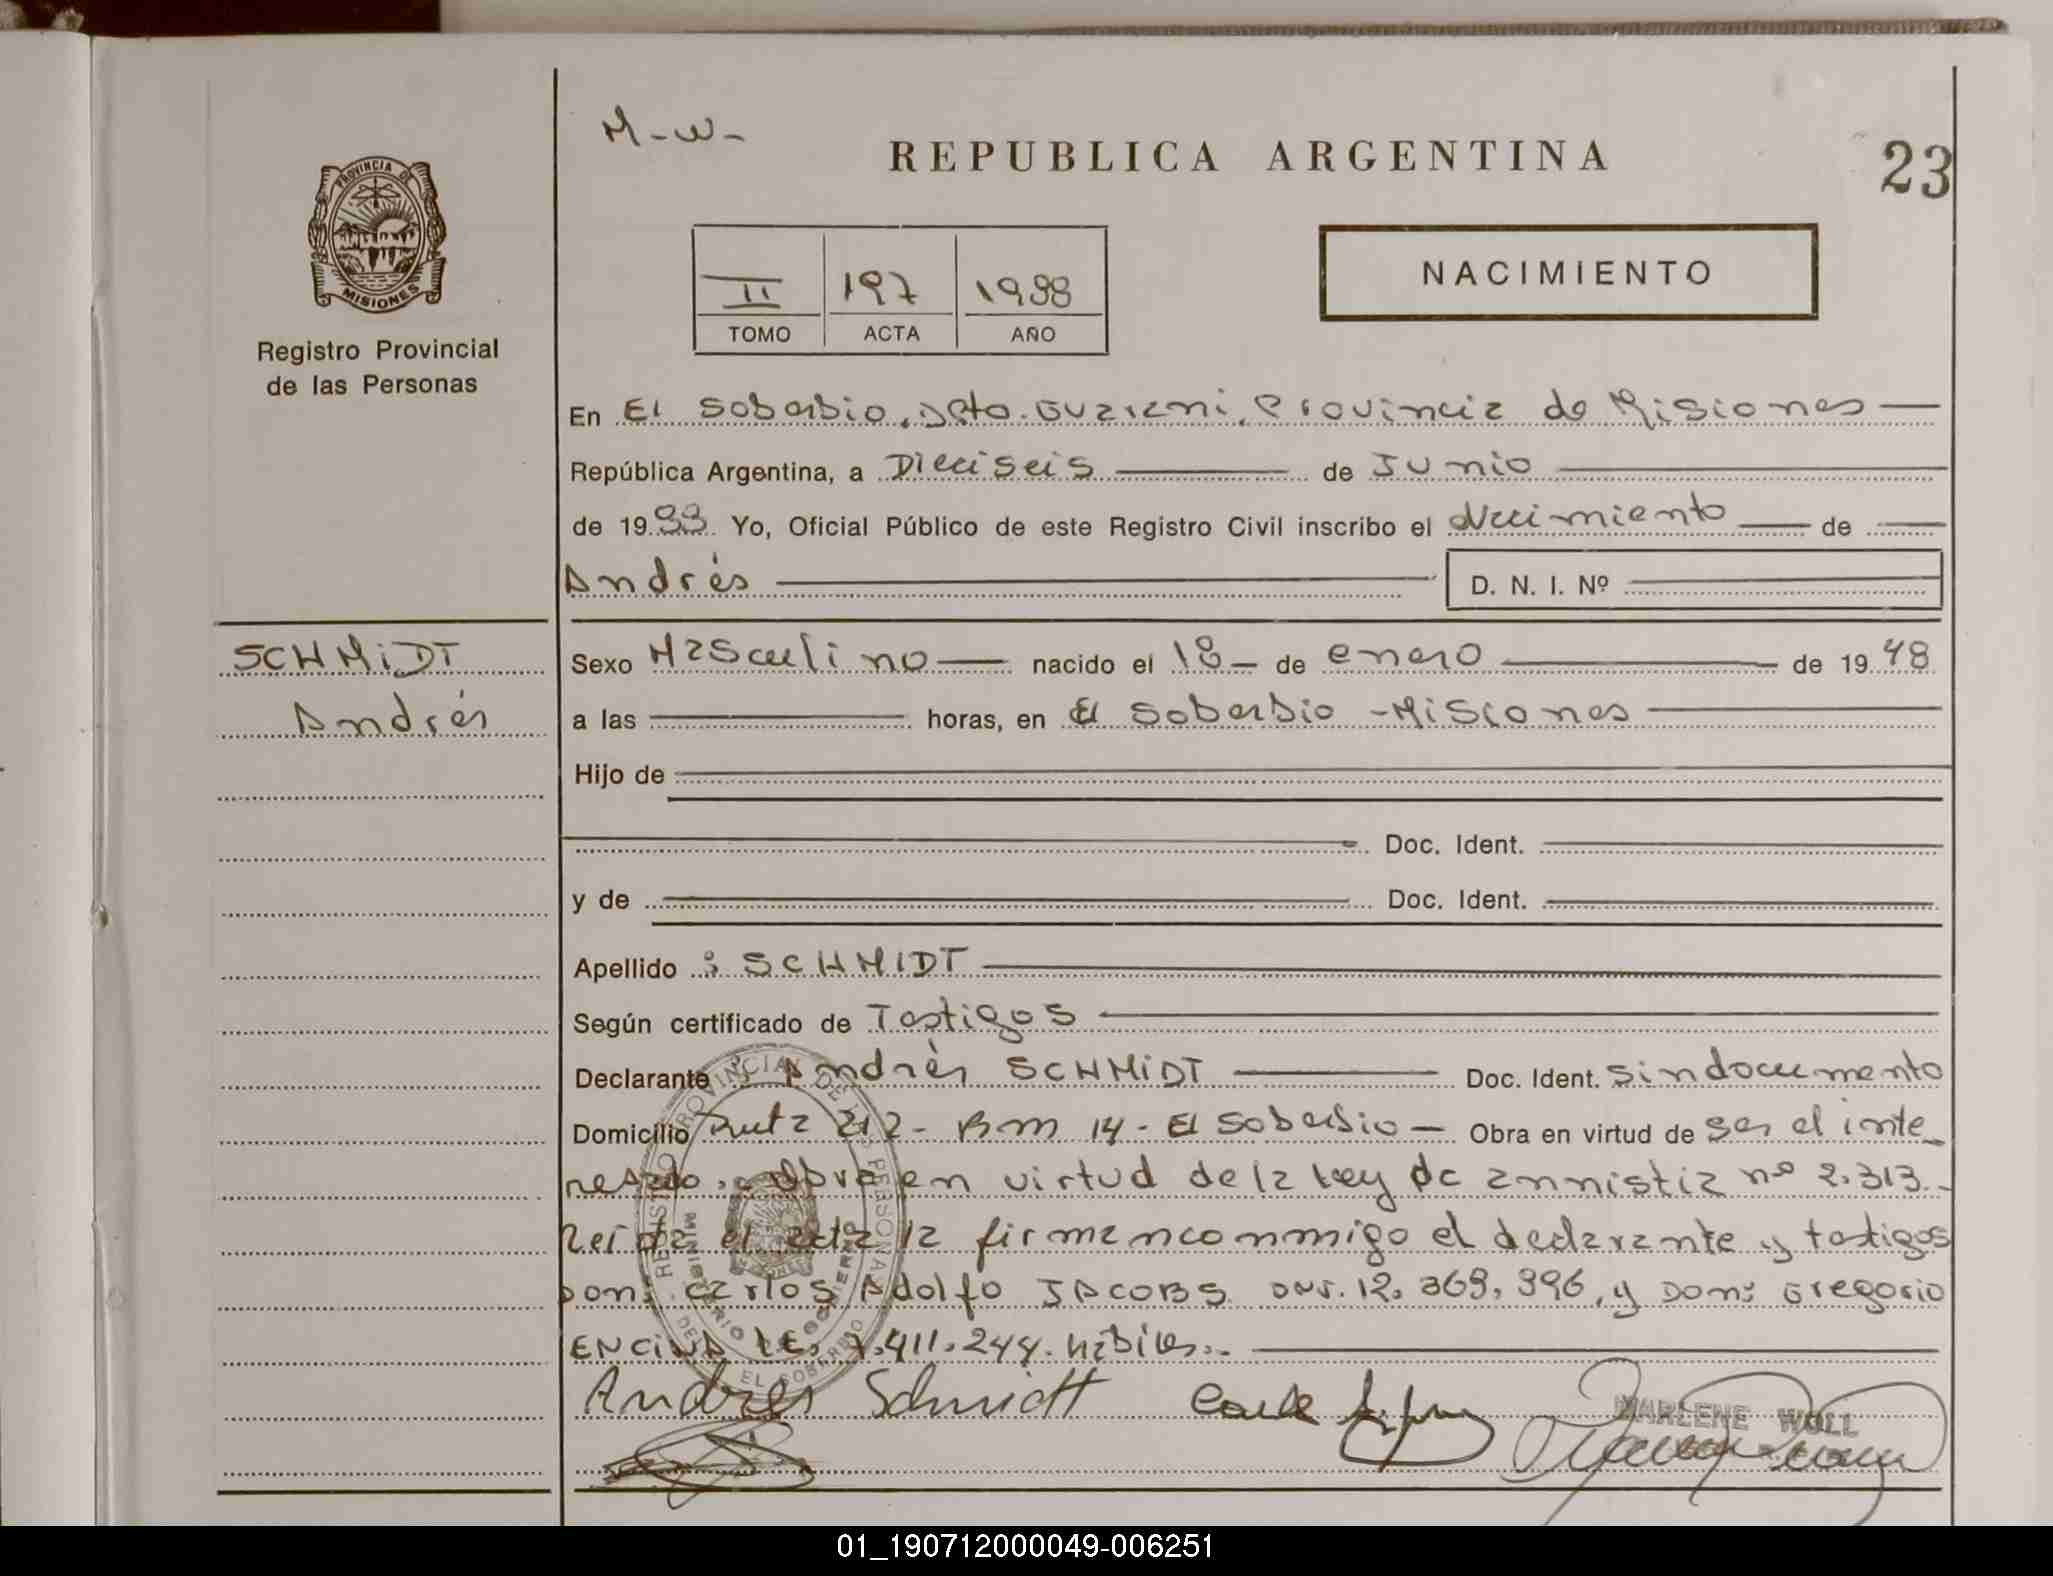 M-W-
REPUBLICA ARGENTINA
23
PROVINCIA DE MISIONES
Registro Provincial
de las Personas
II 197 1988
TOMO ACTA AÑO
NACIMIENTO
En El Soberbio, Dpto. Guarani, Provincia de Misiones
República Argentina, a Dieciseis de Junio
de 1988. Yo, Oficial Público de este Registro Civil inscribo el Nacimiento de
Andrés D. N. I. Nº
SCHMIDT
Andrés
Sexo Masculino nacido el 18 de enero de 1948
a las horas, en El Soberbio - Misiones
Hijo de
Doc. Ident.
y de Doc. Ident.
Apellido : SCHMIDT
Según certificado de Testigos
Declarante : Andrés SCHMIDT Doc. Ident. Sin documento
Domicilio Ruta 212 - Km 14 - El Soberbio - Obra en virtud de Ser el inte-
resado. Obra en virtud de la Ley de amnistia nº 2.313.-
Leída el acta la firman conmigo el declarante y testigos
Don: Carlos Adolfo JACOBS DNI. 12.369.396, y Don: Gregorio
ENCINA L.E. 7.411.244. hábiles.-
Andres Schmidt
MARLENE WOLL
REGISTRO PROVINCIAL DE LAS PERSONAS
MINISTERIO DE GOBIERNO
EL SOBERBIO
01_190712000049-006251